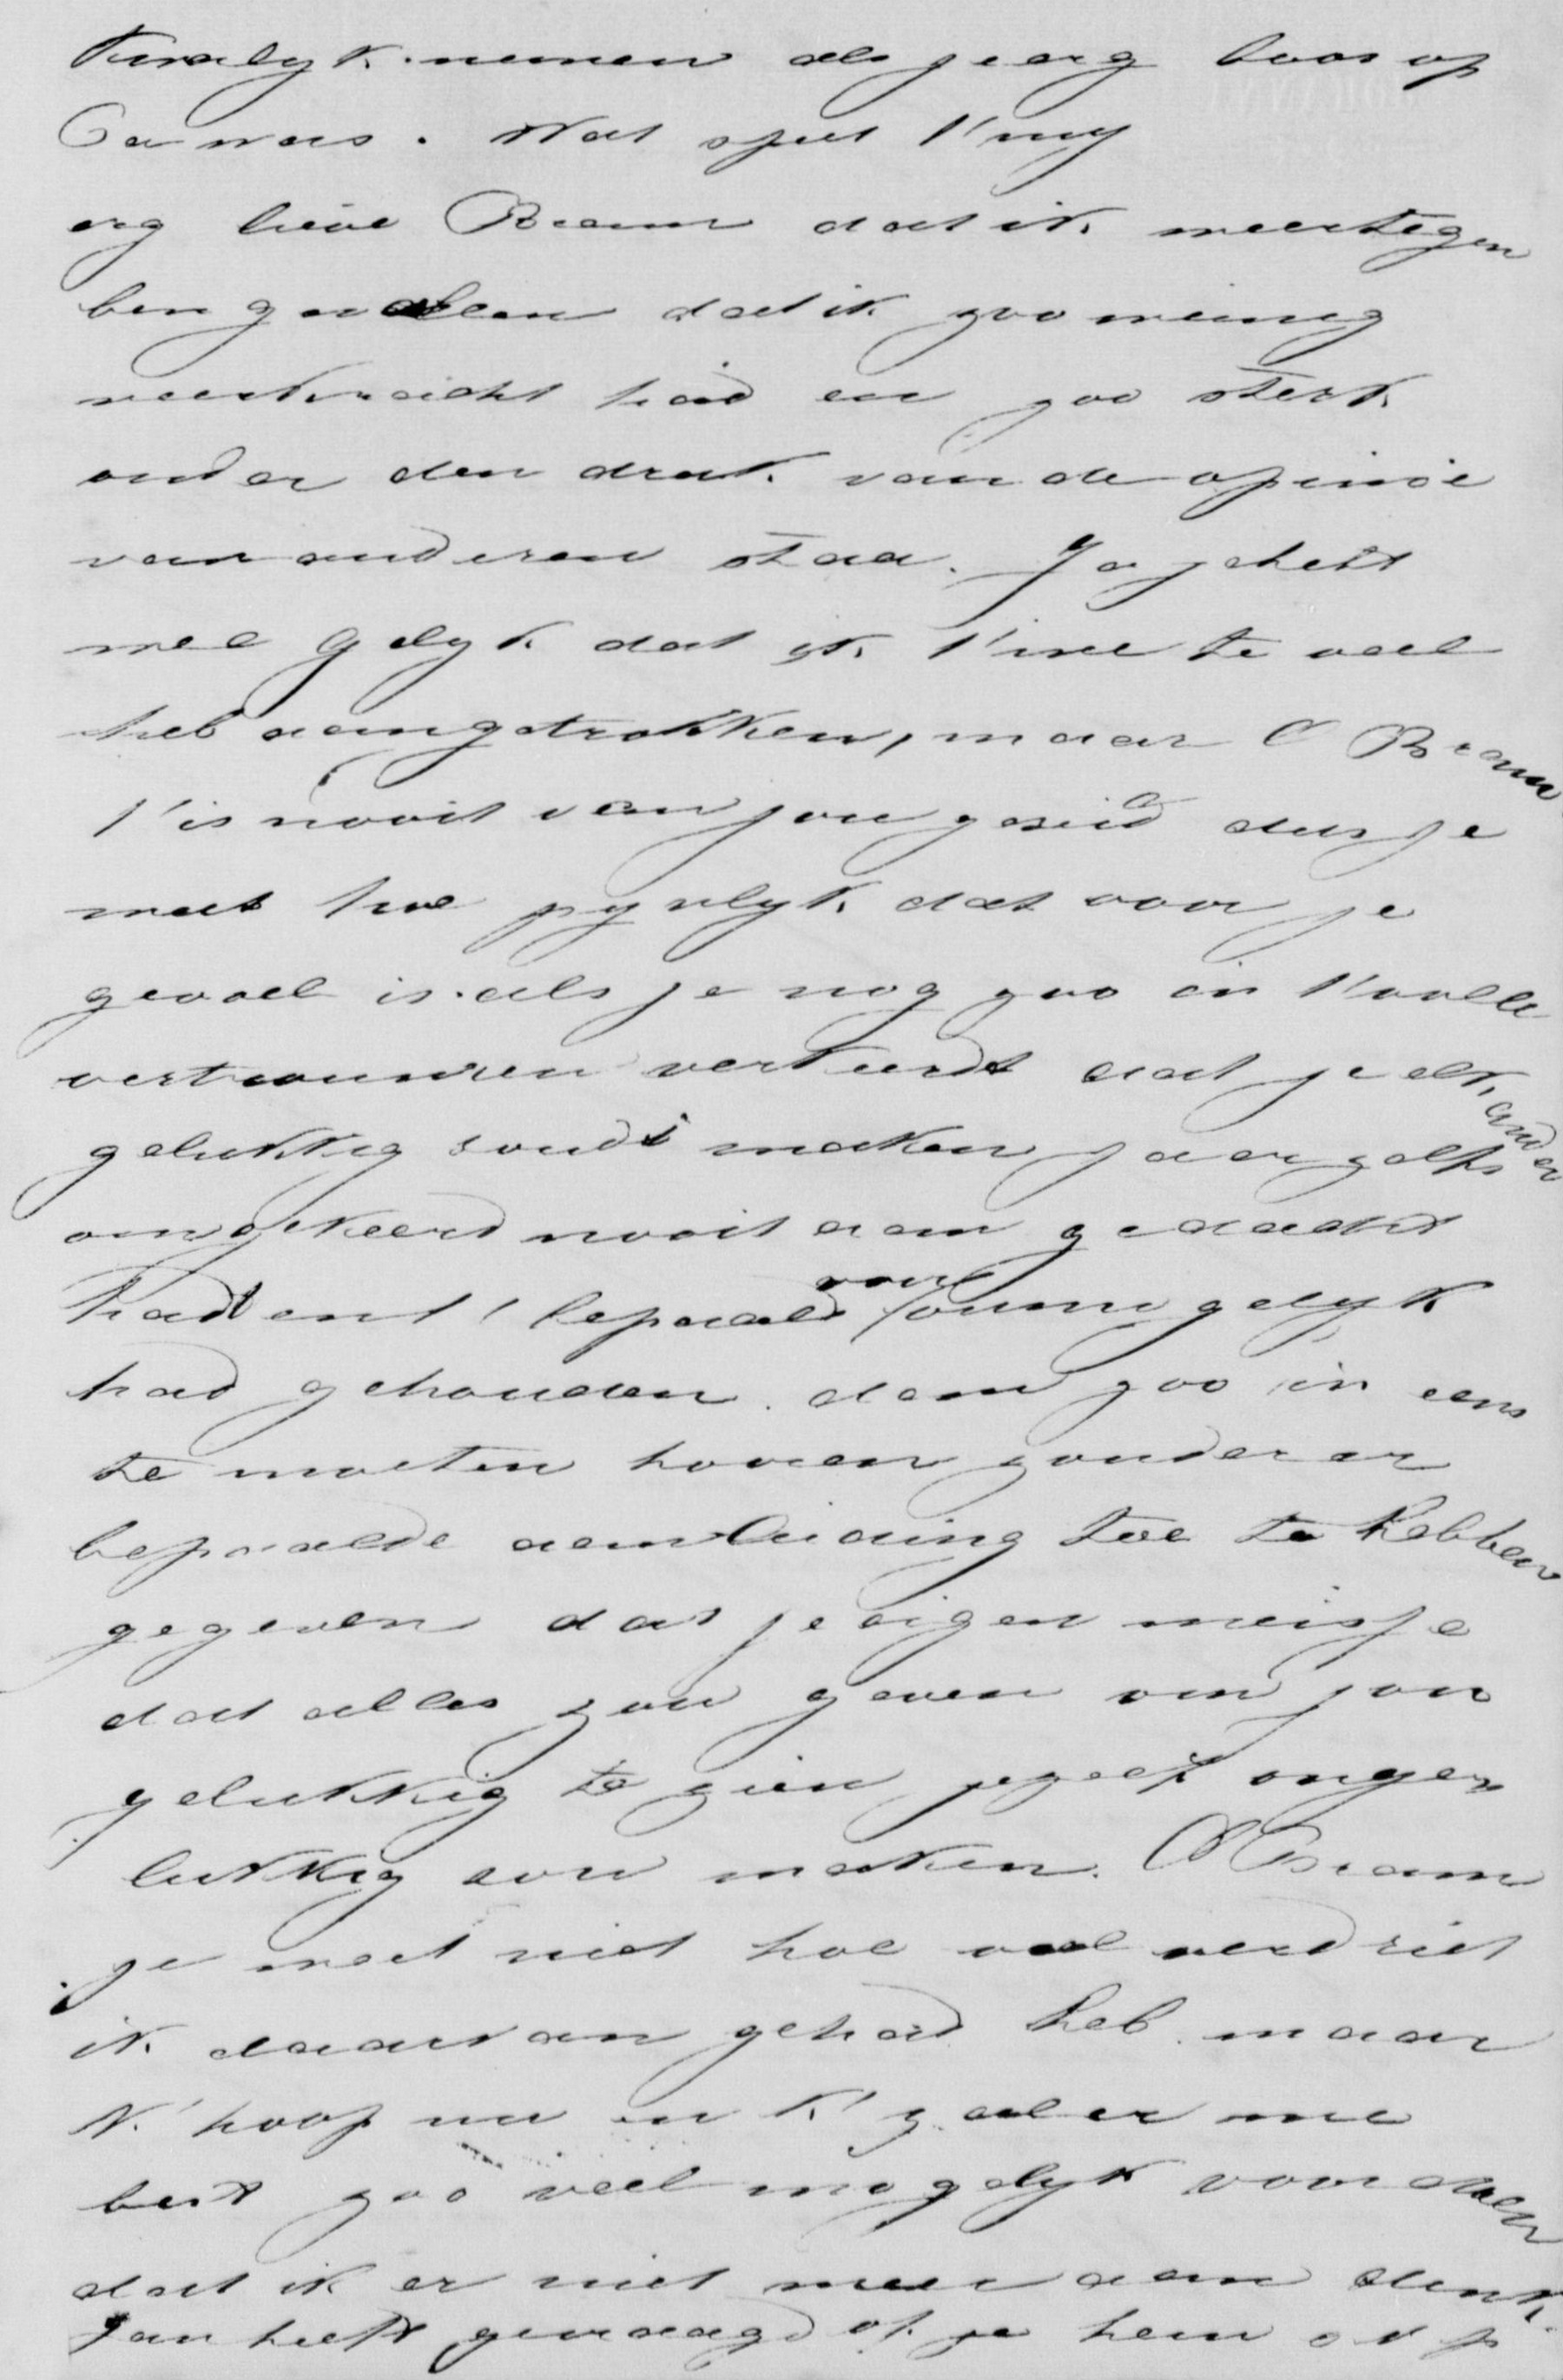 kwalyk nemen als je erg boos op
Ca was. Wat spet t'my
erg lieve Bram dat ik weertegen
ben gevallen dat ik zoo weinig
veerkracht had en zoo sterk
onder den druk van de opinie
van anderen staa. Ja je hebt
wel gelyk dat ik t'me te veel
heb aangetrokken, maar O Bram
t'is nooit van jou gezeid dus je
weet hoe pynlyk dat voor je
gevoel is als je nog zoo in t'volle
vertrouwen verkeerdt dat je elkander
gelukkig soudt maken ja er zelfs
omgekeerd nooit aan gedacht
hadt en t' bepaald voor onmogelyk
had gehouden dan zoo in eens
te moeten hooren zonder er
bepaalde aanleiding toe te hebben
gegeven dat je eigen meisje
dat alles zou geven om jou
gelukkig te zien jezelf onge
lukkig sou maken. O Bram
je weet niet hoe veel verdriet
ik daarvan gehad heb maar
k'hoop nu en k'zal er me
best zoo veel mogelyk voor doen
dat ik er niet meer aan denk.
Jan heeft gevraagd of je hem